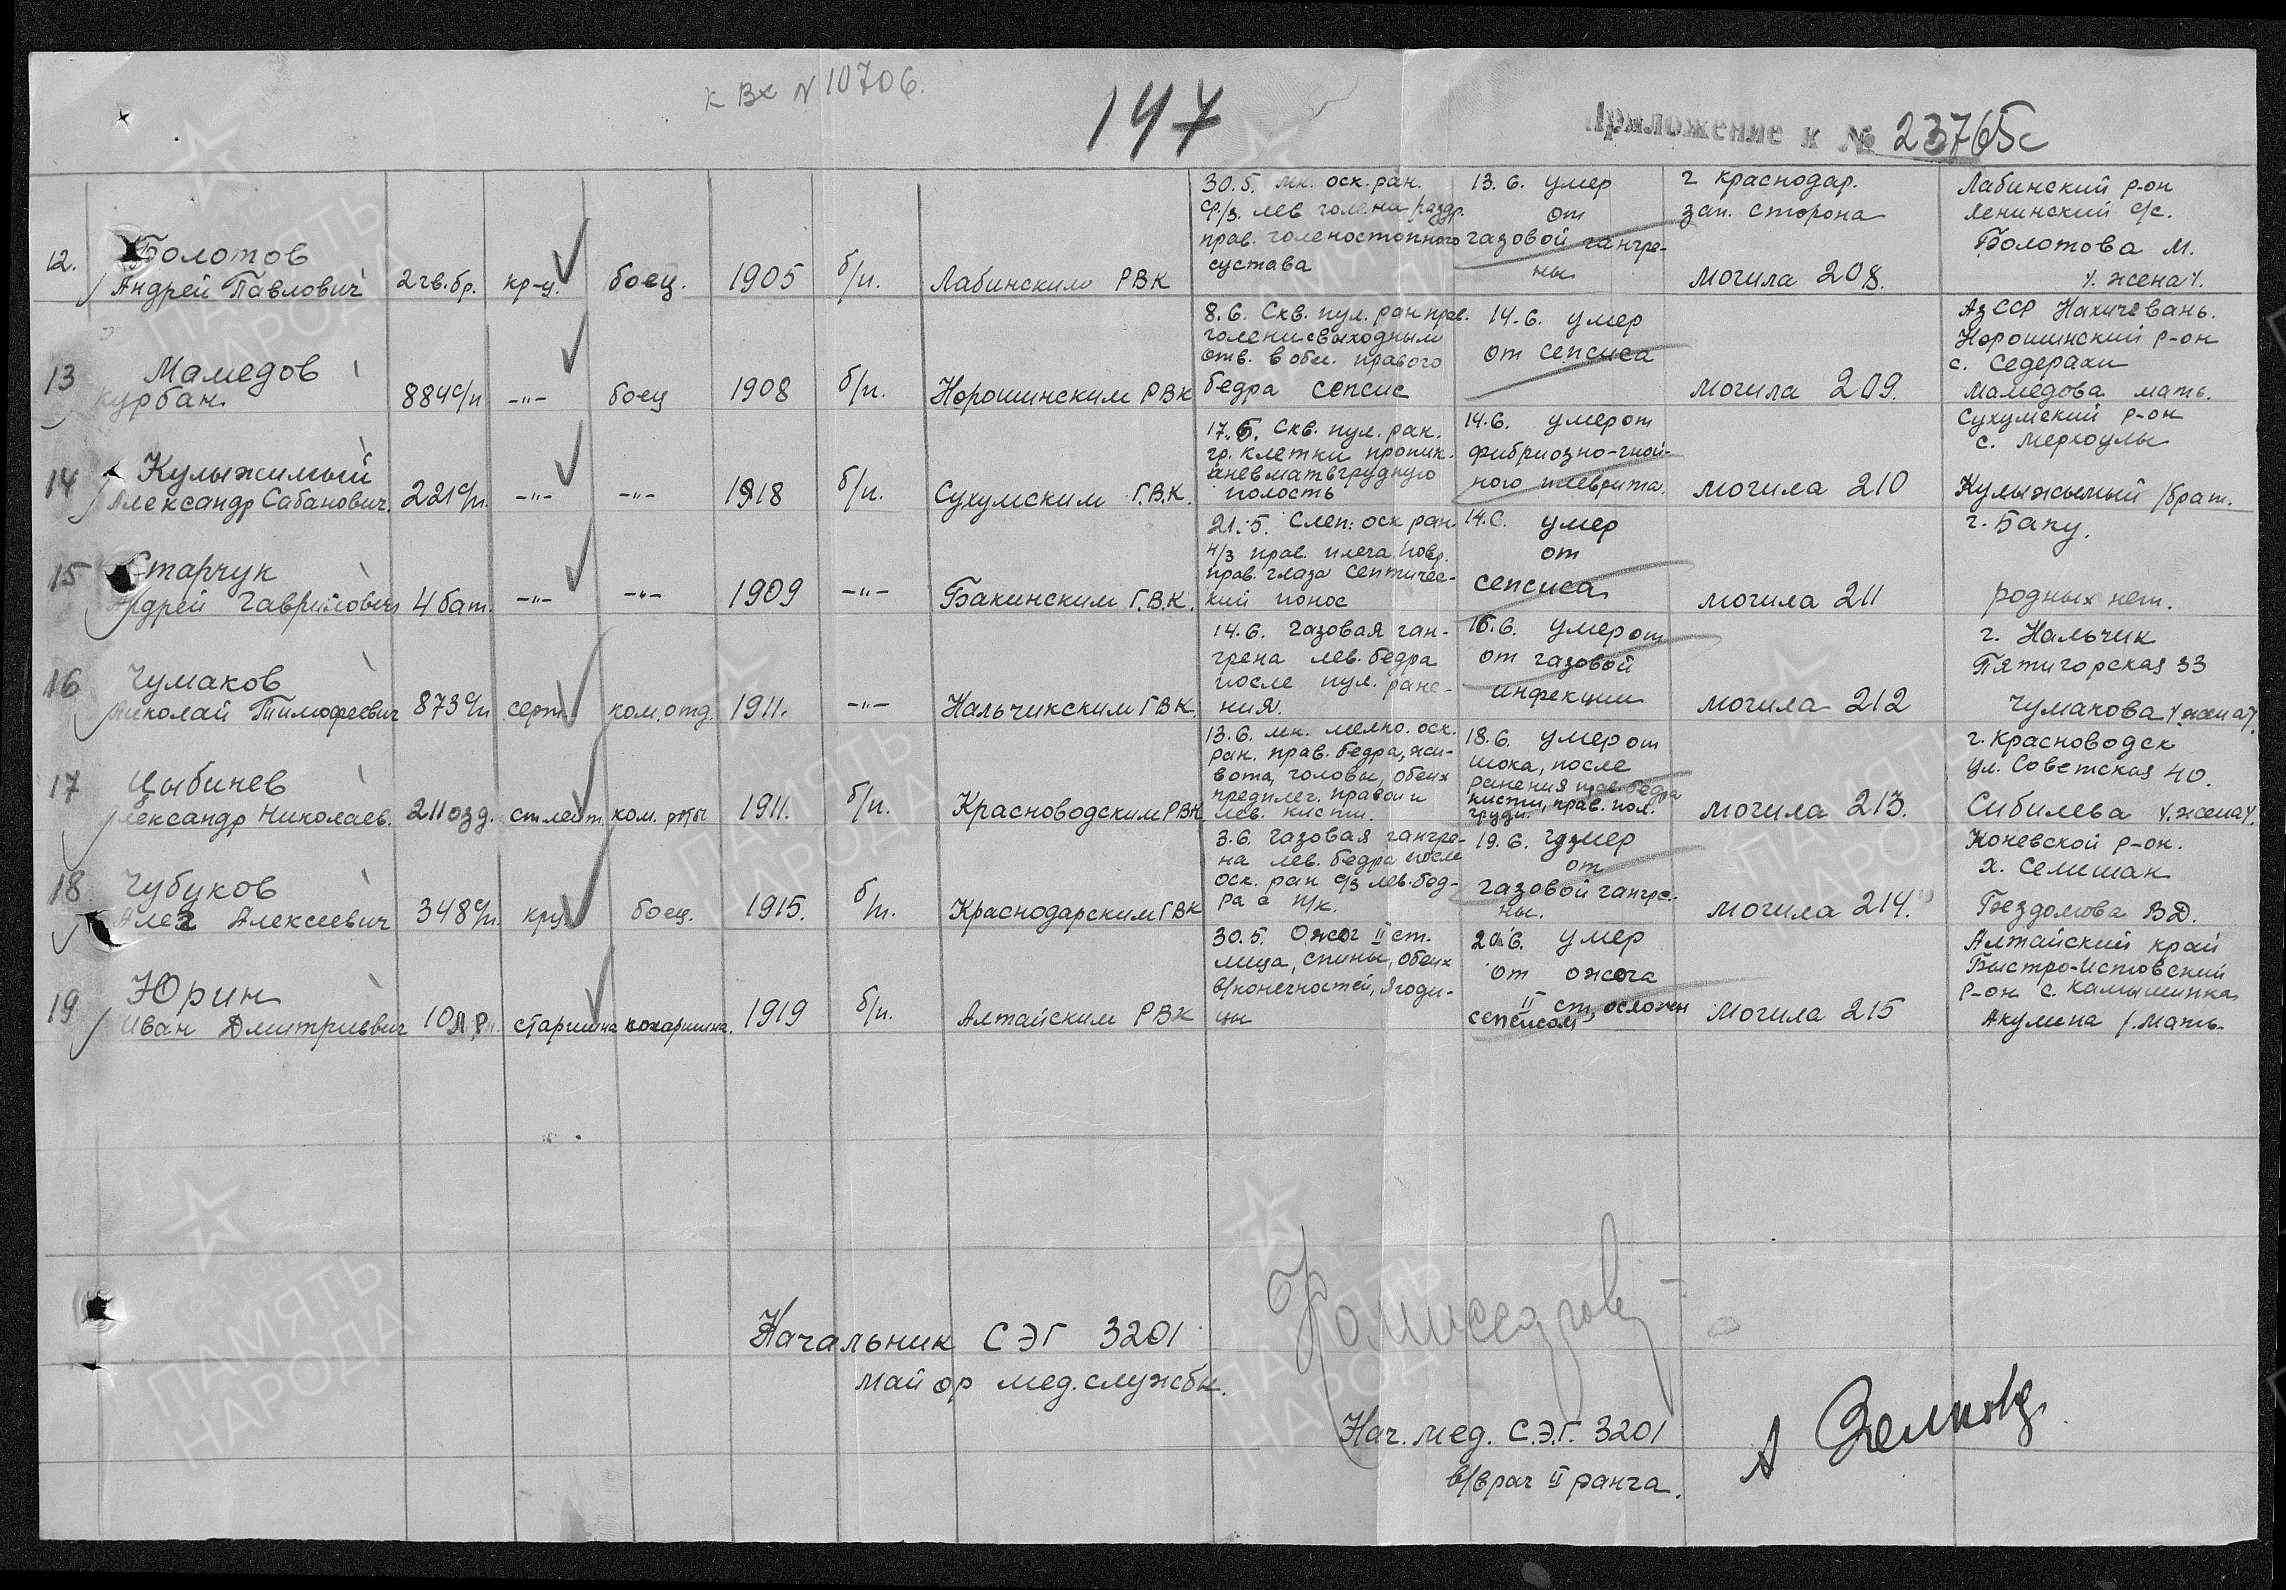 к Вх N 10706.
147
Приложение к № 23765с
12. Болотов
Андрей Павлович 2 гв. бр. кр-ц. боец. 1905 б/п. Лабинским РВК
30.5. мн. оск. ран.
ср/з. лев голени, раздр.
прав. голеностопного
сустава
13.6. умер
от
газовой гангре-
ны
г Краснодар.
зап. сторона
могила 208.
Лабинский р-он
Ленинский с/с.
Болотова М.
/. жена/.
13 Мамедов
Курбан. 884 с/п -"- боец 1908 б/п. Норошинским РВК
8.6. Скв. пул. ран прав.
голени с выходным
отв. в обл. правого
бедра сепсис
14.6. умер
от сепсиса
могила 209.
АзССР Нахичевань.
Норошинский р-он
с. Седерахи
Мамедова мать.
14 Кулыжимый
Александр Сабанович. 221 с/п. -"- -"- 1918 б/п. Сухумским Г.В.К.
17.5. Скв. пул. ран.
гр. клетки проник.
пневмат в грудную
полость
14.6. умер от
фибриозно-гной-
ного плеврита.
могила 210
Сухумский р-он
с. Меркоулы
Кулыжымый /брат.
15 Старчук
Андрей Гаврилович 4 бат. -"- -"- 1909 -"- Бакинским Г.В.К.
21.5. Слеп. оск ран.
н/з прав. плеча. повр.
прав. глаза Септичес-
кий понос
14.6. умер
от
сепсиса
могила 211
г. Баку.
родных нет.
16 Чумаков
Николай Тимофеевич 873 с/п серж. ком. отд. 1911. -"- Нальчикским ГВК.
14.6. Газовая ган-
грена лев. бедра
после пул. ране-
ния.
16.6. умер от
от газовой
инфекции
могила 212
г. Нальчик
Пятигорская 33
Чумакова /. жена/.
17 Цыбилев
Александр Николаев. 211 озд. ст лейт. ком. роты 1911. б/п. Красноводским РВК
13.6. мн. мелко. оск.
ран. прав. бедра, жи-
вота, головы, обеих
предплеч. правой и
лев. кисти.
18.6. умер от
шока, после
ранения прав. бедра
кисти, прав. пол.
груди.
могила 213.
г. Красноводск
ул. Советская 40.
Сибилева /. жена/.
18 Чубуков
Алек Алексеевич 348 с/п. крц боец. 1915. б/п. Краснодарским ГВК
3.6. Газовая гангре-
на лев. бедра после
оск. ран с/з лев. бед-
ра с п/к.
19.6. умер
от
газовой гангре-
ны.
могила 214.
Коневской р-он.
х. Селишан
Бездомова В Д.
19 Юрин
Иван Дмитриевич 10 Л.Р. старшина старшина. 1919 б/п. Алтайским РВК
30.5. Ожог II ст.
лица, спины, обеих
в/конечностей, ягоди-
цы
20.6. умер
от ожога
II ст, осложен
сепсисом
могила 215
Алтайский край
Быстро-Истовский
р-он с. Камышинка
Акулина /. мать.
Начальник СЭГ 3201
майор мед. службы.
Нач. мед. С.Э.Г. 3201
в/врач II ранга.
ПАМЯТЬ
НАРОДА